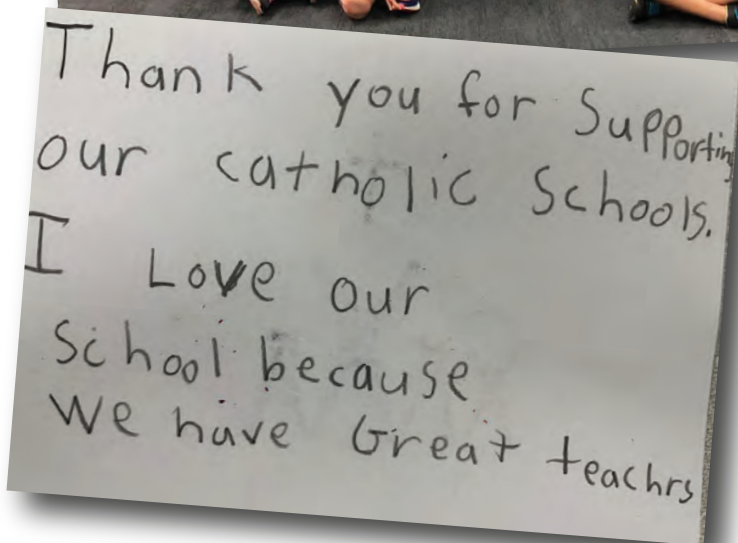 Thank you for Supporting
our catholic Schools.
I Love our
School because
We have Great teachrs